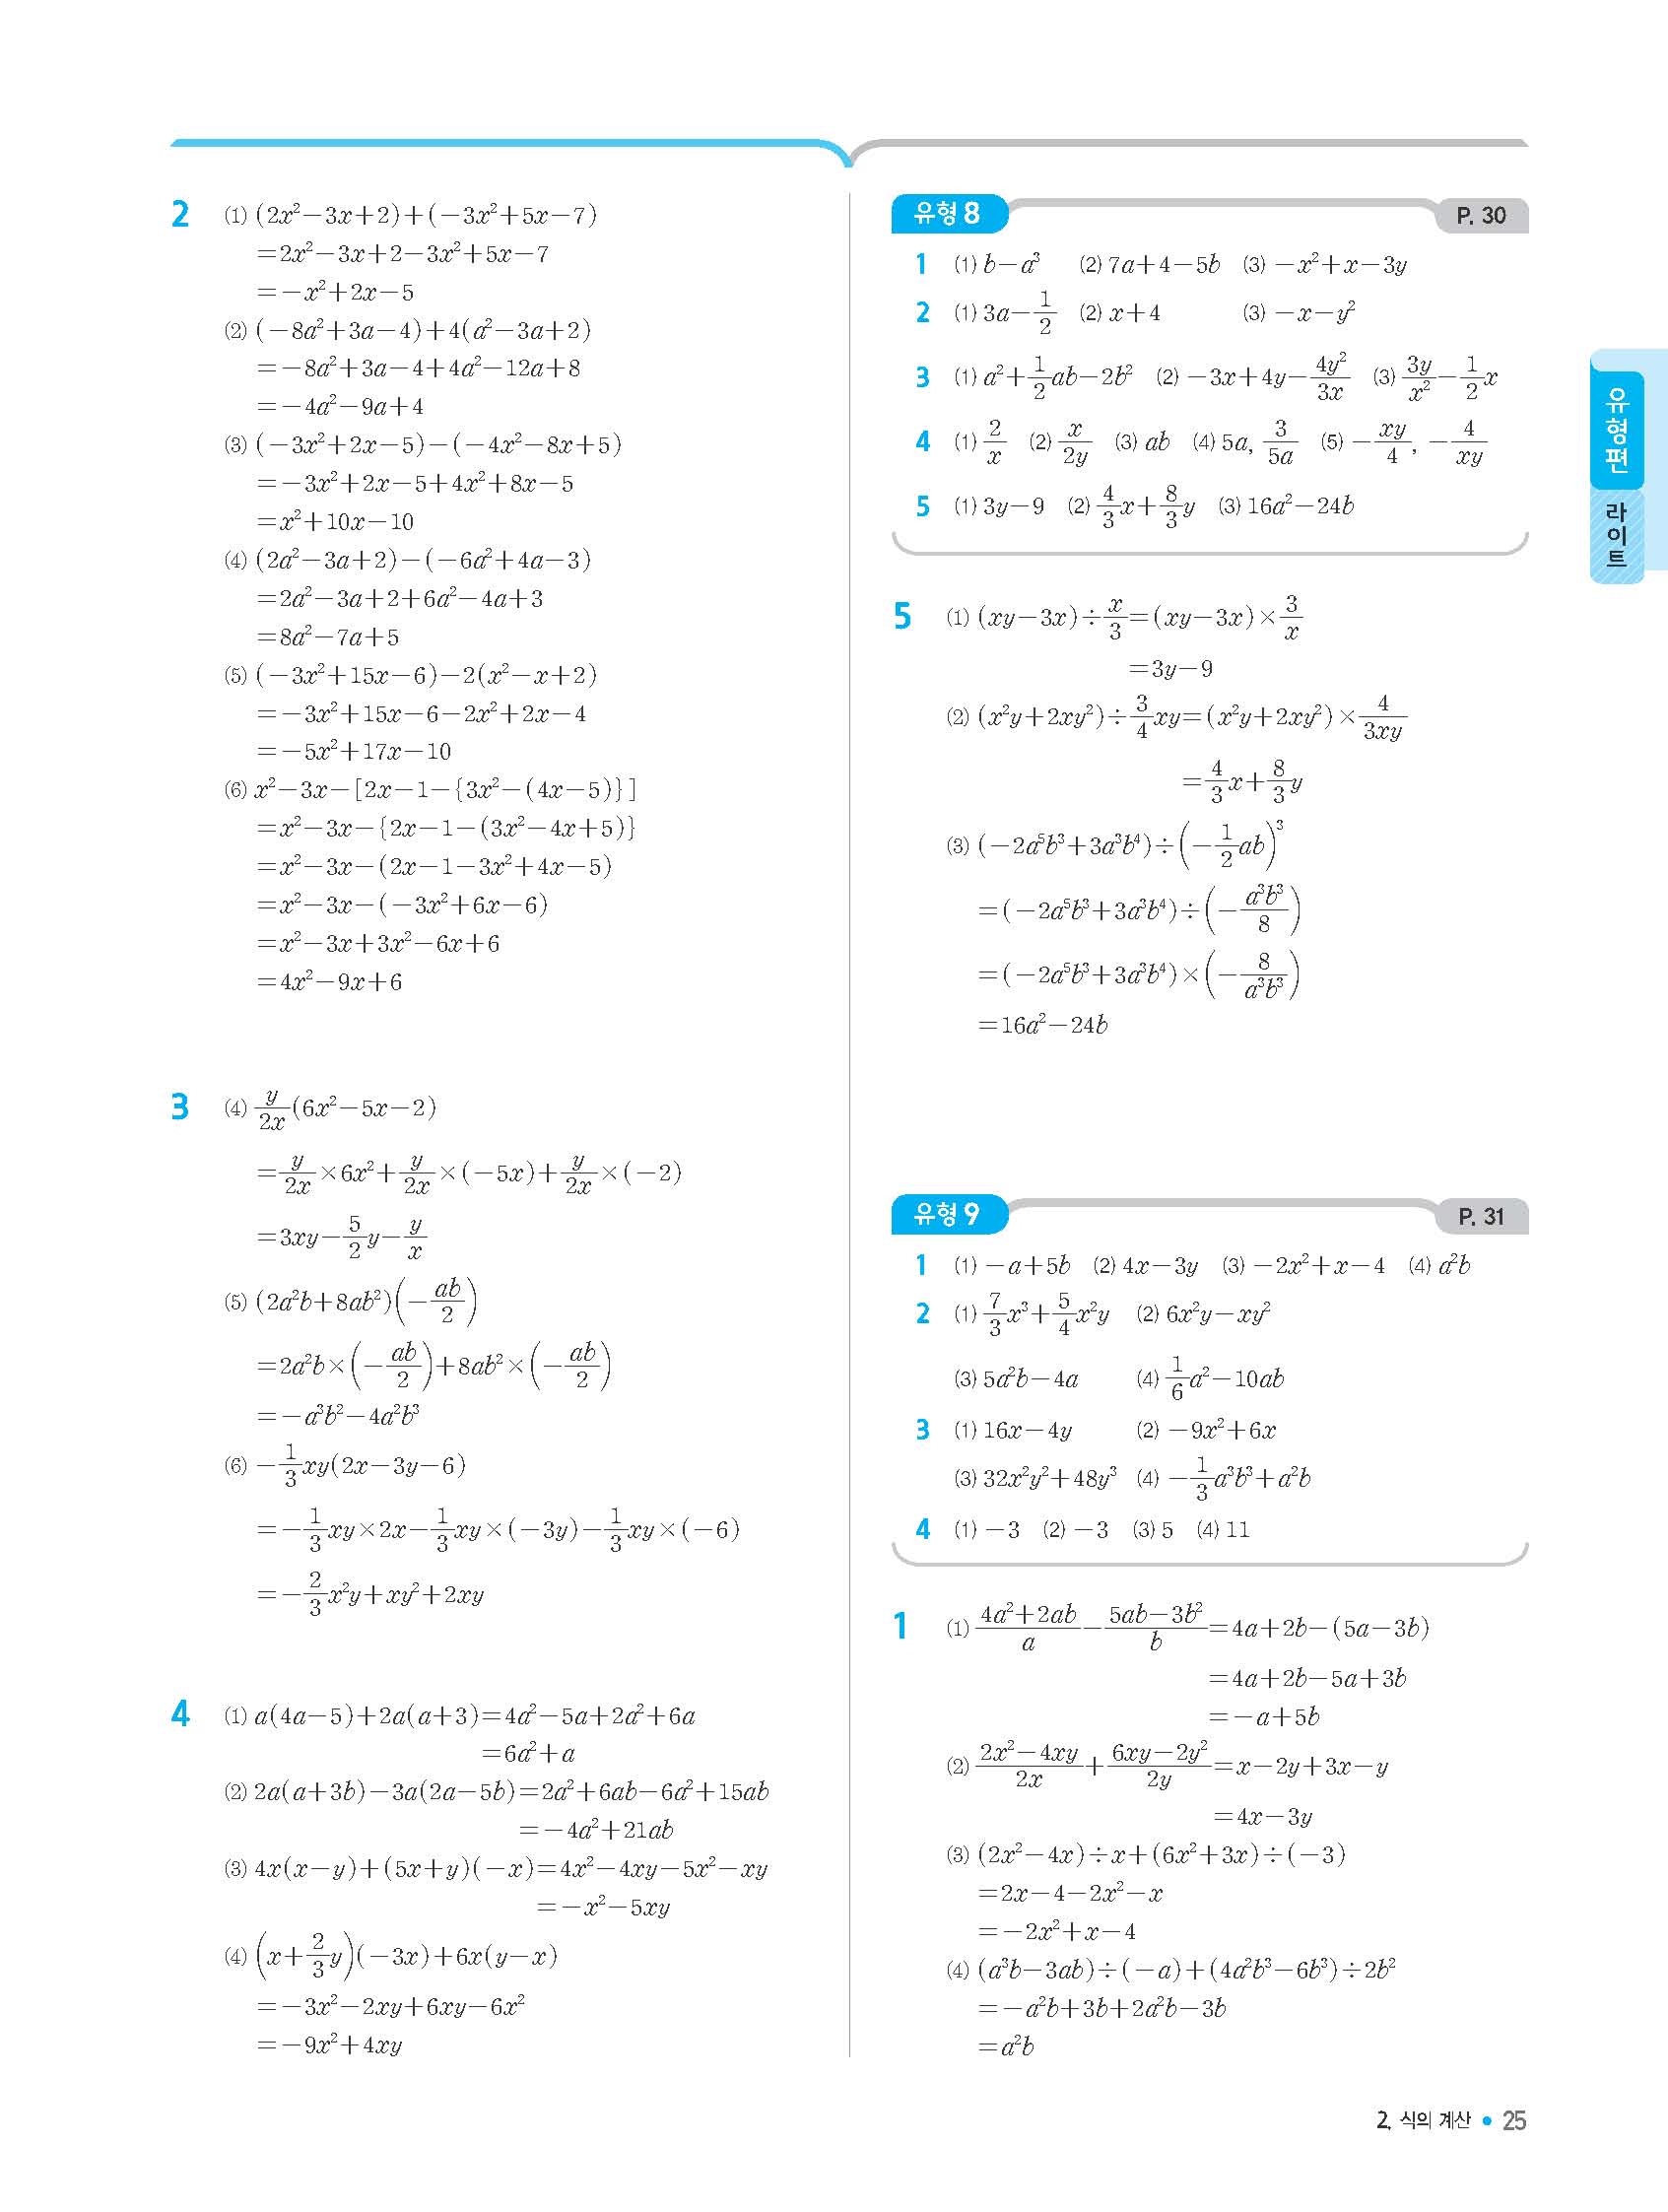 2 (1) (2x²−3x+2)+(−3x²+5x−7)
=2x²−3x+2−3x²+5x−7
=−x²+2x−5
(2) (−8a²+3a−4)+4(a²−3a+2)
=−8a²+3a−4+4a²−12a+8
=−4a²−9a+4
(3) (−3x²+2x−5)−(−4x²−8x+5)
=−3x²+2x−5+4x²+8x−5
=x²+10x−10
(4) (2a²−3a+2)−(−6a²+4a−3)
=2a²−3a+2+6a²−4a+3
=8a²−7a+5
(5) (−3x²+15x−6)−2(x²−x+2)
=−3x²+15x−6−2x²+2x−4
=−5x²+17x−10
(6) x²−3x−[2x−1−{3x²−(4x−5)}]
=x²−3x−{2x−1−(3x²−4x+5)}
=x²−3x−(2x−1−3x²+4x−5)
=x²−3x−(−3x²+6x−6)
=x²−3x+3x²−6x+6
=4x²−9x+6
3 (4) y/2x(6x²−5x−2)
=y/2x×6x²+y/2x×(−5x)+y/2x×(−2)
=3xy−5/2y−y/x
(5) (2a²b+8ab²)(−ab/2)
=2a²b×(−ab/2)+8ab²×(−ab/2)
=−a³b²−4a²b³
(6) −1/3xy(2x−3y−6)
=−1/3xy×2x−1/3xy×(−3y)−1/3xy×(−6)
=−2/3x²y+xy²+2xy
4 (1) a(4a−5)+2a(a+3)=4a²−5a+2a²+6a
=6a²+a
(2) 2a(a+3b)−3a(2a−5b)=2a²+6ab−6a²+15ab
=−4a²+21ab
(3) 4x(x−y)+(5x+y)(−x)=4x²−4xy−5x²−xy
=−x²−5xy
(4) (x+2/3y)(−3x)+6x(y−x)
=−3x²−2xy+6xy−6x²
=−9x²+4xy
유형 8 P. 30
1 (1) b−a³ (2) 7a+4−5b (3) −x²+x−3y
2 (1) 3a−1/2 (2) x+4 (3) −x−y²
3 (1) a²+1/2ab−2b² (2) −3x+4y−4y²/3x (3) 3y/x²−1/2x
4 (1) 2/x (2) x/2y (3) ab (4) 5a, 3/5a (5) −xy/4, −4/xy
5 (1) 3y−9 (2) 4/3x+8/3y (3) 16a²−24b
5 (1) (xy−3x)÷x/3=(xy−3x)×3/x
=3y−9
(2) (x²y+2xy²)÷3/4xy=(x²y+2xy²)×4/3xy
=4/3x+8/3y
(3) (−2a⁵b³+3a³b⁴)÷(−1/2ab)³
=(−2a⁵b³+3a³b⁴)÷(−a³b³/8)
=(−2a⁵b³+3a³b⁴)×(−8/a³b³)
=16a²−24b
유형 9 P. 31
1 (1) −a+5b (2) 4x−3y (3) −2x²+x−4 (4) a²b
2 (1) 7/3x³+5/4x²y (2) 6x²y−xy²
(3) 5a²b−4a (4) 1/6a²−10ab
3 (1) 16x−4y (2) −9x²+6x
(3) 32x²y²+48y³ (4) −1/3a³b³+a²b
4 (1) −3 (2) −3 (3) 5 (4) 11
1 (1) 4a²+2ab/a−5ab−3b²/b=4a+2b−(5a−3b)
=4a+2b−5a+3b
=−a+5b
(2) 2x²−4xy/2x+6xy−2y²/2y=x−2y+3x−y
=4x−3y
(3) (2x²−4x)÷x+(6x²+3x)÷(−3)
=2x−4−2x²−x
=−2x²+x−4
(4) (a³b−3ab)÷(−a)+(4a²b³−6b³)÷2b²
=−a²b+3b+2a²b−3b
=a²b
유형편
라이트
2. 식의 계산 • 25